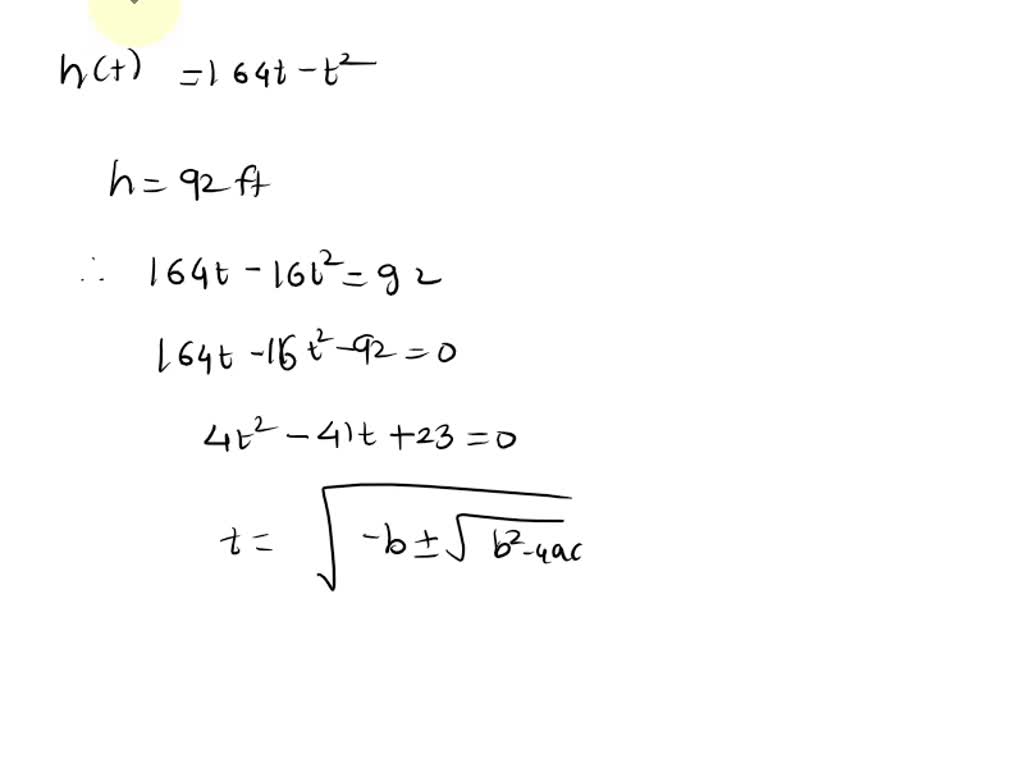 h(t) = 164t - t²
h = 92 ft
∴ 164t - 16t² = 92
164t - 16t² - 92 = 0
4t² - 41t + 23 = 0
t = √(-b ± √(b² - 4ac))